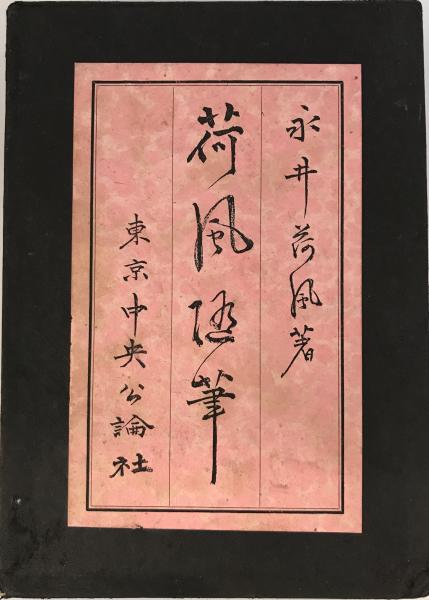 永井荷風著
荷風随筆
東京中央公論社